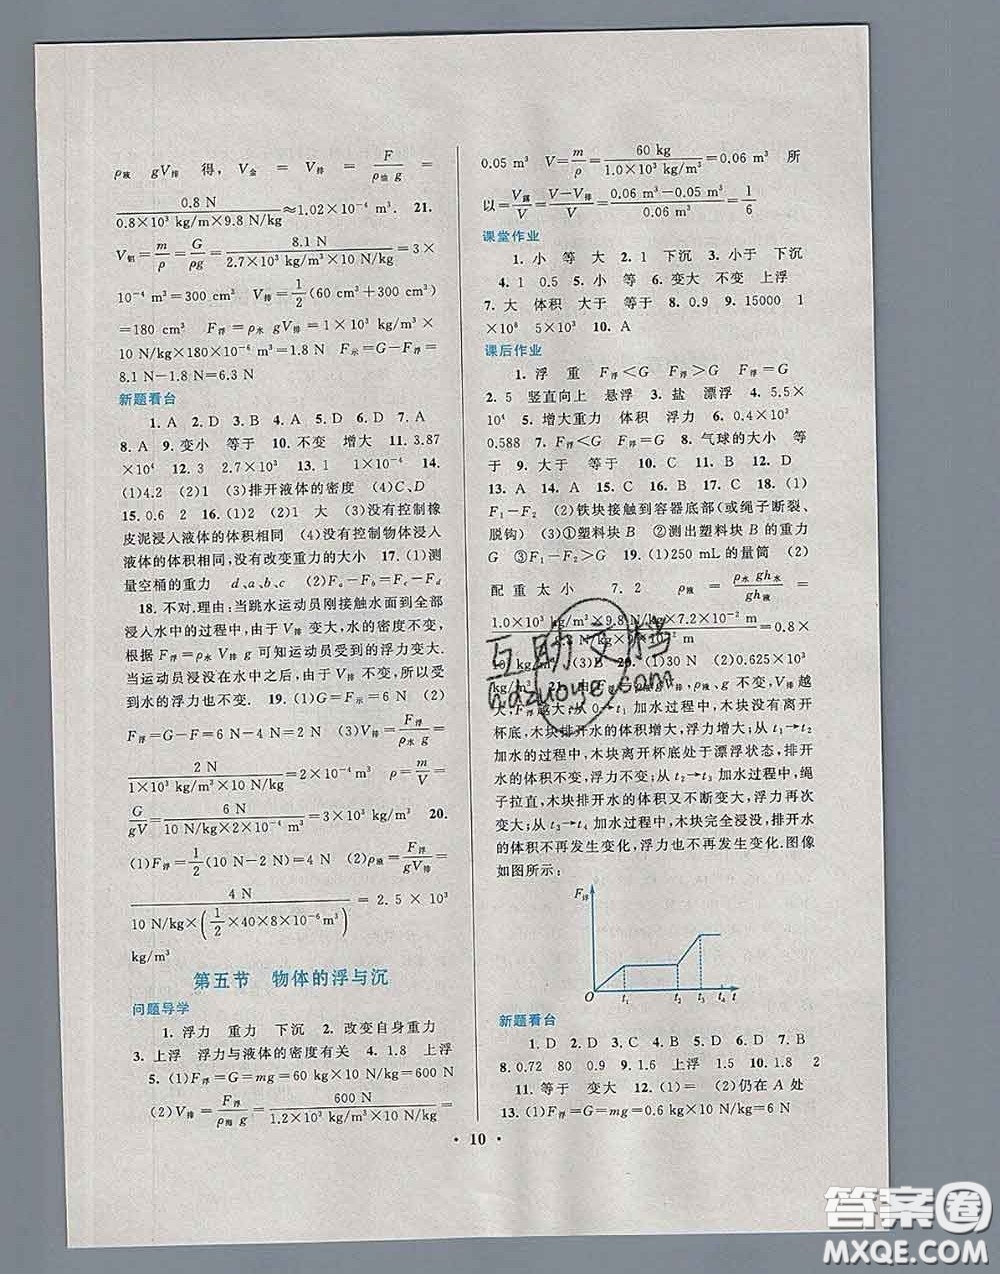 ρ液 gV排 得, V金 = V排 = F/(ρ油 g) =
0.8 N/(0.8×10³ kg/m×9.8 N/kg)≈1.02×10⁻⁴ m³. 21.
V铝=m/ρ=G/(ρg)=8.1 N/(2.7×10³ kg/m³×10 N/kg)=3×
10⁻⁴ m³=300 cm³ V排=1/2(60 cm³+300 cm³)
=180 cm³ F浮=ρ水 gV排=1×10³ kg/m³×
10 N/kg×180×10⁻⁶ m³=1.8 N F示=G-F浮=
8.1 N-1.8 N=6.3 N
新题看台
1. A 2. D 3. B 4. A 5. D 6. D 7. A
8. A 9. 变小 等于 10. 不变 增大 11. 3.87
×10⁴ 12. 3 2.7×10³ 13. 1 1×10⁻⁴ 14.
(1)4.2 (2)1 (3)排开液体的密度 (4)C、D
15. 0.6 2 16. (1)2 (2)1 大 (3)没有控制橡
皮泥浸入液体的体积相同 (4)没有控制物体浸入
液体的体积相同,没有改变重力的大小 17. (1)测
量空桶的重力 d、a、b、c (2)Fₐ-F_b=F_c-F_d
18. 不对.理由:当跳水运动员刚接触水面到全部
浸入水中的过程中,由于 V排 变大,水的密度不变,
根据 F浮=ρ水 V排 g 可知运动员受到的浮力变大.
当运动员浸没在水中之后,由于 V排 不变,所以受
到水的浮力也不变. 19. (1)G=F示=6 N (2)
F浮=G-F=6 N-4 N=2 N (3)V排=F浮/(ρ水 g)=
2 N/(1×10³ kg/m³×10 N/kg)=2×10⁻⁴ m³ ρ=m/V=
G/(gV)=6 N/(10 N/kg×2×10⁻⁴ m³)=3×10³ kg/m³ 20.
(1)F浮=1/2(10 N-2 N)=4 N (2)ρ液=F浮/(gV排)=
4 N/(10 N/kg×(1/2×40×8×10⁻⁶m³)) = 2.5 ×10³
kg/m³
第五节 物体的浮与沉
问题导学
1. 浮力 重力 下沉 2. 改变自身重力
3. 上浮 浮力与液体的密度有关 4. 1.8 上浮
5. (1)F浮=G=mg=60 kg×10 N/kg=600 N
(2)V排=F浮/(ρ海 g)=600 N/(1.2×10³ kg/m³×10 N/kg)=
0.05 m³ V=m/ρ=60 kg/(1.0×10³ kg/m³)=0.06 m³ 所
以=V露/V=(V-V排)/V=(0.06 m³-0.05 m³)/0.06 m³=1/6
课堂作业
1. 小 等 大 2. 1 下沉 3. 小于 下沉
4. 1 0.5 5. 小 等 6. 变大 不变 上浮
7. 大 体积 大于 等于 8. 0.9 9. 15000 1
×10⁸ 5×10³ 10. A
课后作业
1. 浮 重 F浮<G F浮>G F浮=G
2. 5 竖直向上 悬浮 3. 盐 漂浮 4. 5.5×
10⁴ 5. 增大重力 体积 浮力 6. 0.4×10³
0.588 7. F浮<G F浮=G 8. 气球的大小 等
于 9. 大于 等于 10. C 11. B 12. D
13. A 14. A 15. C 16. B 17. C 18. (1)
F₁-F₂ (2)铁块接触到容器底部(或绳子断裂、
脱钩) (3)①塑料块 ②测出塑料块 B 的重力
G ③F₁-F₂>G 19. (1)250 mL的量筒 (2)
配重太小 7.2 ρ液 = ρ水 gh水/gh液 =
1.0×10³ kg/m³×9.8 N/kg×7.2×10⁻² m = 0.8×
10³ kg/m³ (3)B 20. (1)30 N (2)0.625×10³
kg/m³ 21. 由 F浮=ρ液 gV排,ρ液、g 不变,V排 越
大,F浮 越大;从 0→t₁ 加水过程中,木块没有离开
杯底,木块排开水的体积增大,浮力增大;从 t₁→t₂
加水的过程中,木块离开杯底处于漂浮状态,排开
水的体积不变,浮力不变;从 t₂→t₃ 加水过程中,绳
子拉直,木块排开水的体积又不断变大,浮力再次
变大;从 t₃→t₄ 加水过程中,木块完全浸没,排开水
的体积不再发生变化,浮力也不再发生变化.图像
如图所示:
F浮
O t₁ t₂ t₃ t₄ t
新题看台
1. D 2. D 3. C 4. C 5. A 6. D 7. B
8. 0.72 80 0.9 9. 1.6 上浮 1.5 10. 1.8 2
11. 等于 变大 12. (1)= (2)仍在 A 处
13. (1)F浮=G=mg=0.6 kg×10 N/kg=6 N
· 10 ·
互助文档
hdzuoye.com
答案圈
MXQE.COM